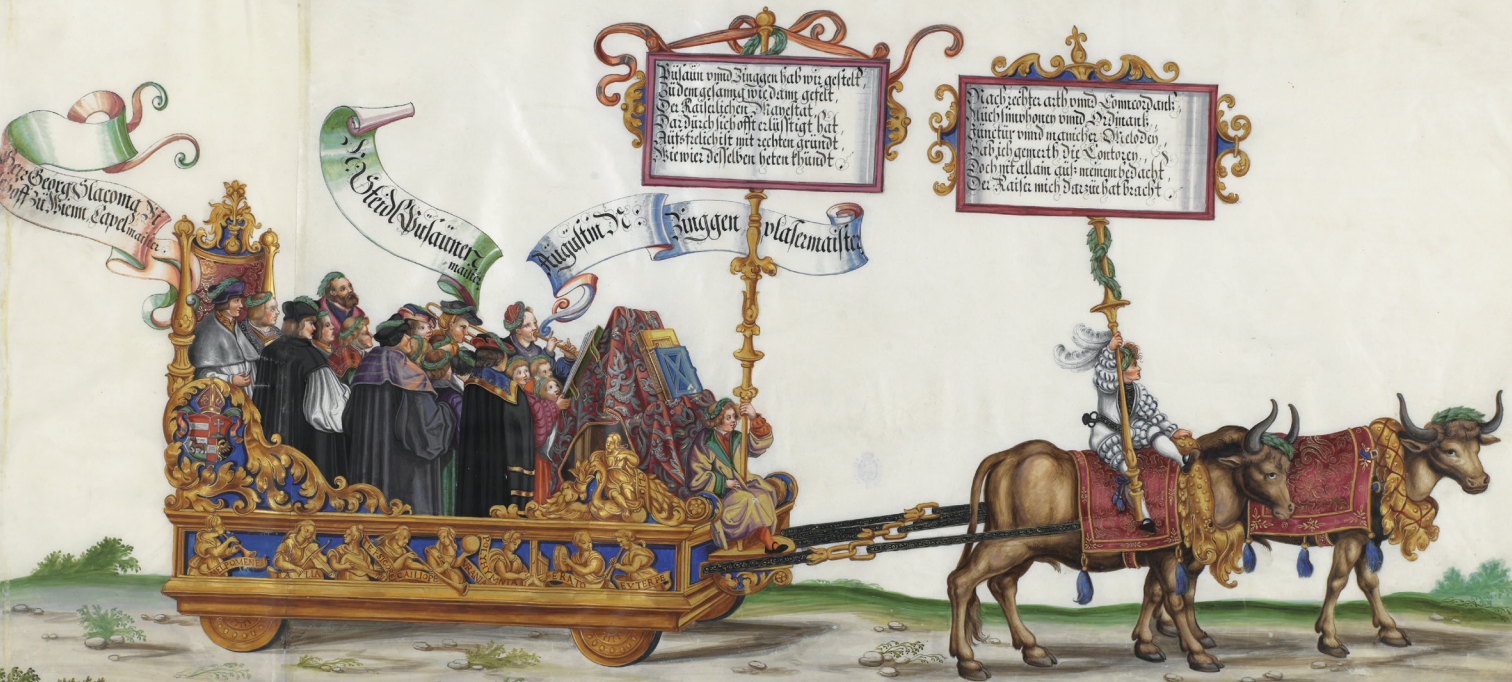 Herr Georg Slacoma Bi
hoff zů Wienn, Capel
maister.
N: Steidl Pusauner
maister
Augustin N: Zinggen plasermaister
Pusaun vnnd Zinggen hab wir gestelt,
Zu dem gesanng wie dann gefelt,
Der Kaiserlichen Mayestat
Dardurch sich offt erlusstigt hat,
Aufs frelichist mit rechten grundt
Wie wier desselben heten khundt.
Nach rechter arth vnnd Conncordanntz
Auch Simphoney vnnd Ordinantz
Junctur vnnd manicher Melodey
Hab ich gemerth die Contorey,
Doch nit allain aus meinem bedacht,
Der Kaiser mich darzu hat bracht.
THALIA
CALLIOPE
ERATO
EVTERPE